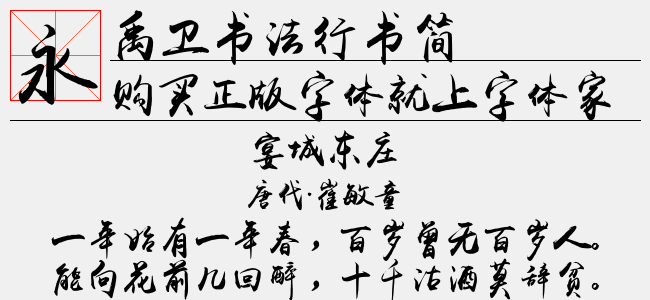 永
禹卫书法行书简
购买正版字体就上字体家
宴城东庄
唐代·崔敏童
一年始有一年春，百岁曾无百岁人。
能向花前几回醉，十千沽酒莫辞贫。